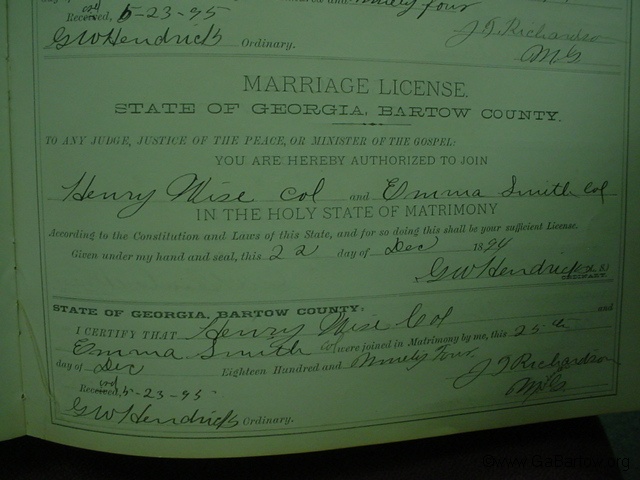 Hundred and Ninety four
Received, 5-23-95
G W Hendricks Ordinary.
J. T. Richardson
M G
MARRIAGE LICENSE.
STATE OF GEORGIA, BARTOW COUNTY.
TO ANY JUDGE, JUSTICE OF THE PEACE, OR MINISTER OF THE GOSPEL:
YOU ARE HEREBY AUTHORIZED TO JOIN
Henry Wise Col and Emma Smith Col
IN THE HOLY STATE OF MATRIMONY
According to the Constitution and Laws of this State, and for so doing this shall be your sufficient License.
Given under my hand and seal, this 22 day of Dec 1894
G W Hendricks
ORDINARY.
STATE OF GEORGIA, BARTOW COUNTY:
I CERTIFY THAT Henry Wise Col and
Emma Smith Col were joined in Matrimony by me, this 25th
day of Dec Eighteen Hundred and Ninety Four
Received, 5-23-95
J T Richardson
M G
G W Hendricks Ordinary.
www.GaBartow.org